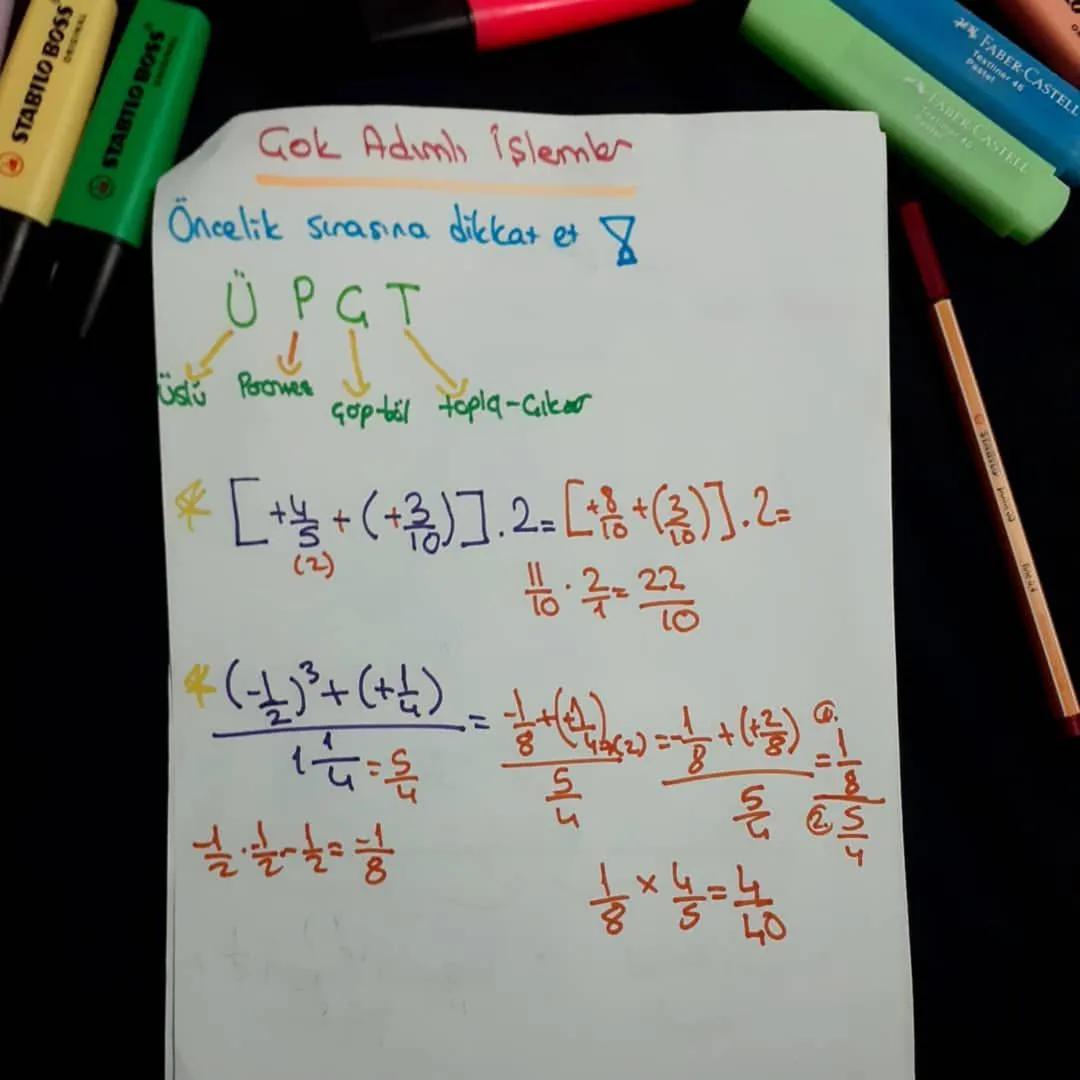 STABILO BOSS ORIGINAL
STABILO BOSS
FABER-CASTELL
Textliner 46
Pastel
FABER-CASTELL
Textliner 46
Pastel
Çok Adımlı İşlemler
Öncelik sırasına dikkat et
Ü P Ç T
Üslü Parantez Çarp-böl topla-Çıkar
[+4/5 + (+3/10)] . 2 = [+8/10 + (3/10)] . 2 =
(2)
11/10 . 2/1 = 22/10
(-1/2)³ + (+1/4) / 1 1/4 = 5/4 = -1/8 + (+1/4) (2) / 5/4 = -1/8 + (+2/8) / 5/4 = 1. 1/8 / 2. 5/4
-1/2 . -1/2 . -1/2 = -1/8
1/8 x 4/5 = 4/40